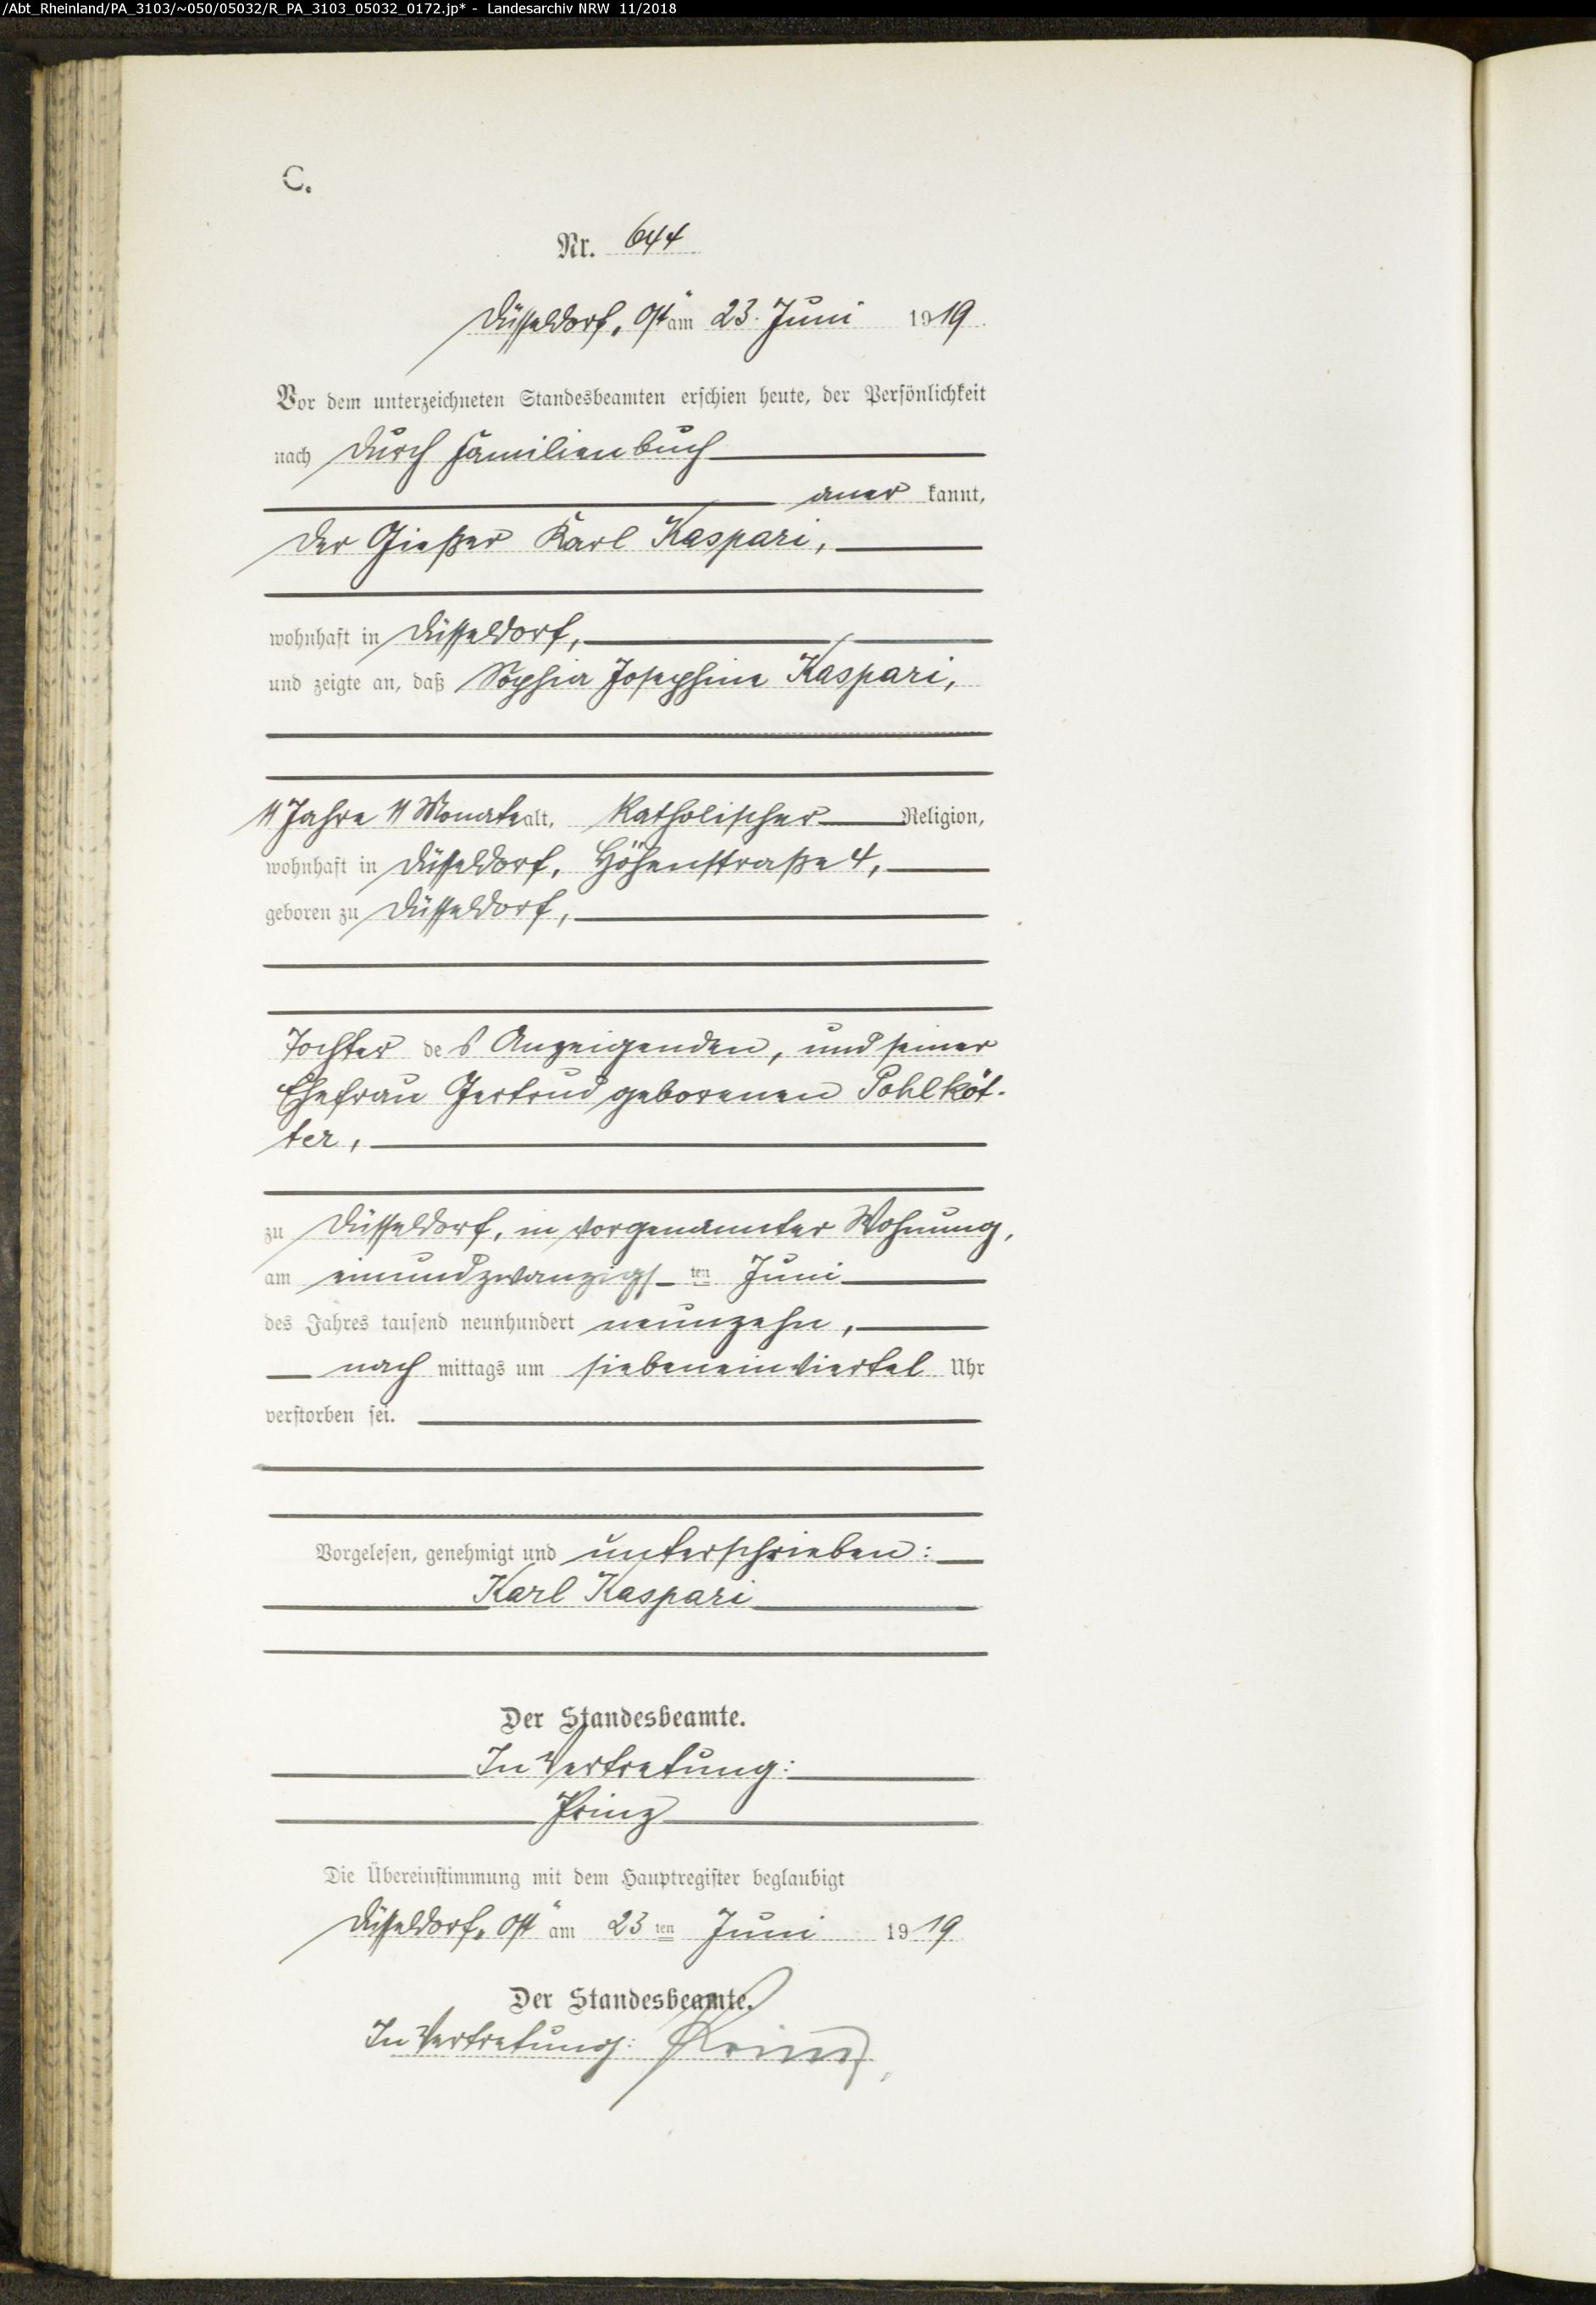 /Abt_Rheinland/PA_3103/~050/05032/R_PA_3103_05032_0172.jp* - Landesarchiv NRW 11/2018
C.
Nr. 644
Düsseldorf „Ost“ am 23. Juni 1919.
Vor dem unterzeichneten Standesbeamten erschien heute, der Persönlichkeit
nach durch Familienbuch
aner kannt,
der Gießer Karl Kaspari,
wohnhaft in Düsseldorf,
und zeigte an, daß Sophia Josephina Kaspari,
11 Jahre 11 Monate alt, Katholischer Religion,
wohnhaft in Düsseldorf, Höhenstraße 4,
geboren zu Düsseldorf,
Tochter des Anzeigenden, und seiner
Ehefrau Gertrud geborenen Pohlköt-
ter,
zu Düsseldorf, in vorgenannter Wohnung,
am einundzwanzigs ten Juni
des Jahres tausend neunhundert neunzehn,
nach mittags um siebeneinviertel Uhr
verstorben sei.
Vorgelesen, genehmigt und unterschrieben:
Karl Kaspari
Der Standesbeamte.
In Vertretung:
Prinz
Die Übereinstimmung mit dem Hauptregister beglaubigt
Düsseldorf „Ost“ am 23 ten Juni 1919
Der Standesbeamte.
In Vertretung: Prinz